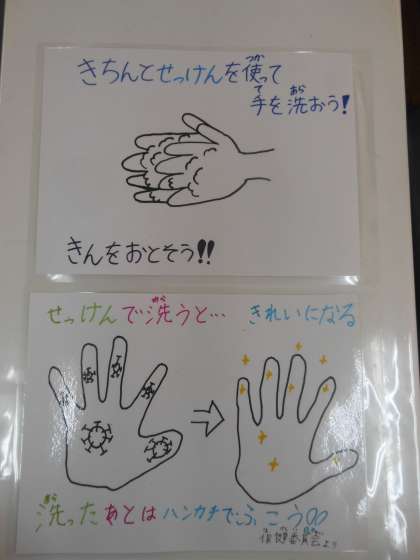 きちんとせっけんを使って
手を洗おう!
きんをおとそう!!
せっけんで洗うと… きれいになる
洗ったあとはハンカチでふこう
保健委員会より